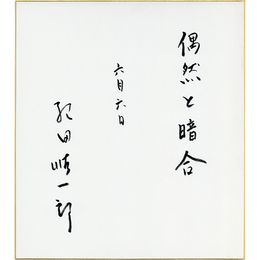 偶然と暗合
六月六日
紀田順一郎